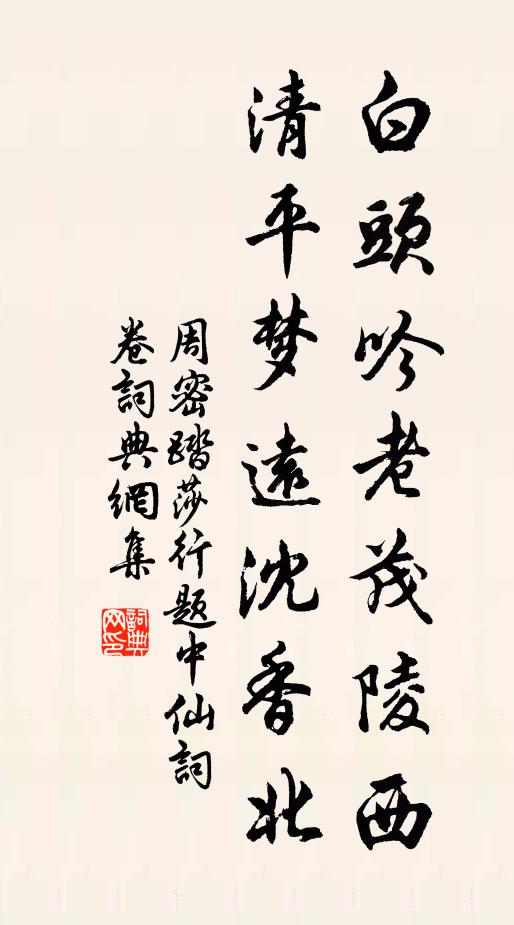 白頭吟老茂陵西
清平梦遠沈香北
周密踏莎行题中仙詞
卷詞典網集
詞典网印